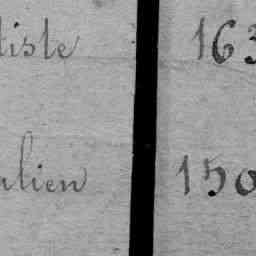 tiste 163
alien 150